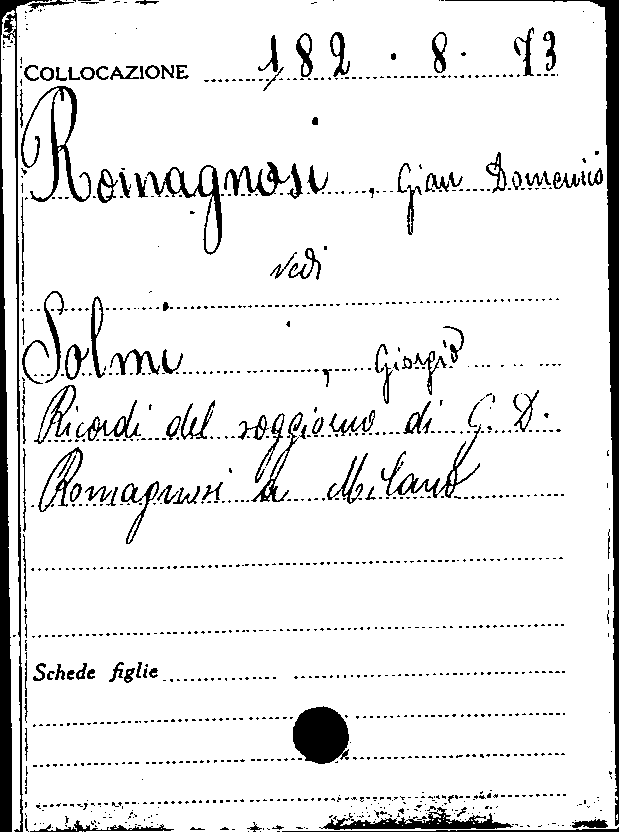 COLLOCAZIONE 182 . 8 . 73
Romagnosi , Gian Domenico
vedi
Solmi , Giorgio
Ricordi del soggiorno di G. D.
Romagnosi a Milano
Schede figlie